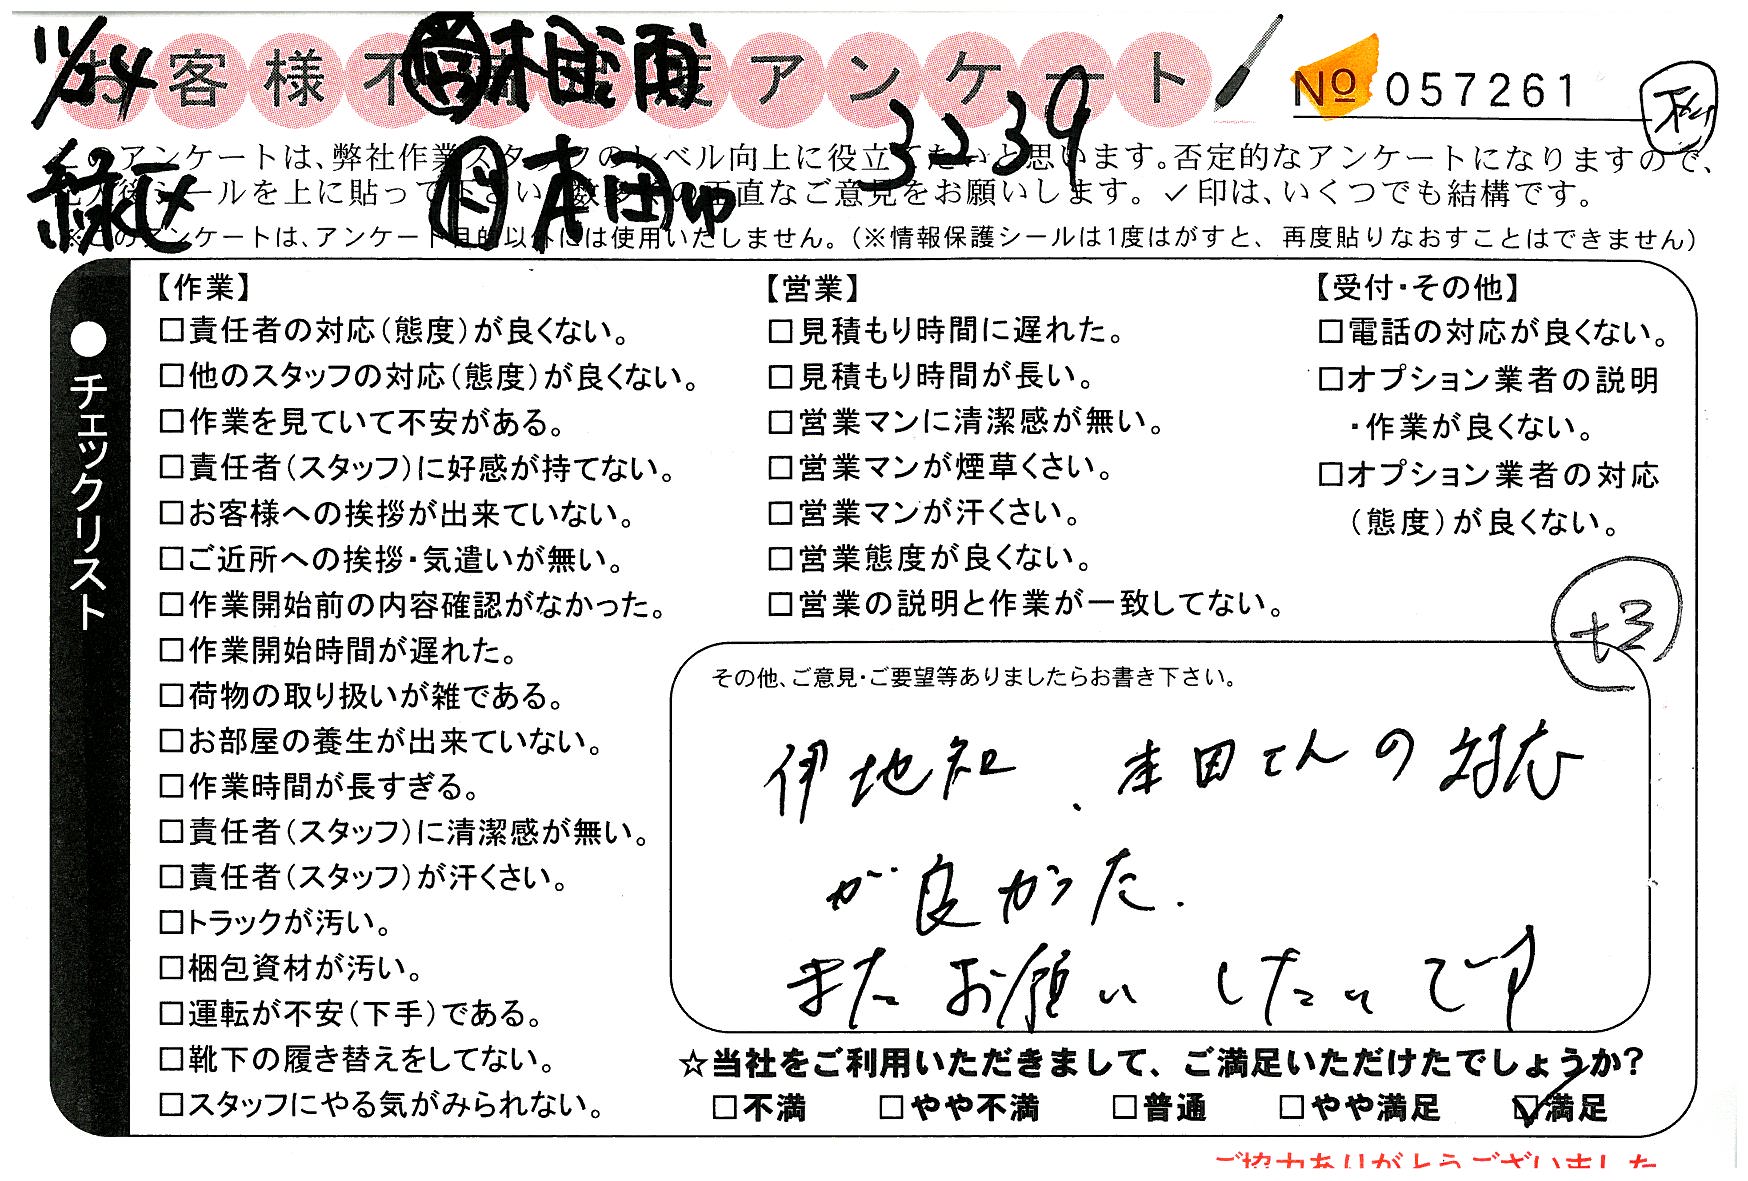 11/24
営 相浦
お客様不満足度アンケート
№ 057261
3239
緑区
本田
このアンケートは、弊社作業スタッフのレベル向上に役立てたいと思います。否定的なアンケートになりますので、
後シールを上に貼って下さい。数多くの正直なご意見をお願いします。✓印は、いくつでも結構です。
※このアンケートは、アンケート目的以外には使用いたしません。（※情報保護シールは1度はがすと、再度貼りなおすことはできません）
●チェックリスト
【作業】
□責任者の対応（態度）が良くない。
□他のスタッフの対応（態度）が良くない。
□作業を見ていて不安がある。
□責任者（スタッフ）に好感が持てない。
□お客様への挨拶が出来ていない。
□ご近所への挨拶・気遣いが無い。
□作業開始前の内容確認がなかった。
□作業開始時間が遅れた。
□荷物の取り扱いが雑である。
□お部屋の養生が出来ていない。
□作業時間が長すぎる。
□責任者（スタッフ）に清潔感が無い。
□責任者（スタッフ）が汗くさい。
□トラックが汚い。
□梱包資材が汚い。
□運転が不安（下手）である。
□靴下の履き替えをしてない。
□スタッフにやる気がみられない。
【営業】
□見積もり時間に遅れた。
□見積もり時間が長い。
□営業マンに清潔感が無い。
□営業マンが煙草くさい。
□営業マンが汗くさい。
□営業態度が良くない。
□営業の説明と作業が一致してない。
【受付・その他】
□電話の対応が良くない。
□オプション業者の説明
・作業が良くない。
□オプション業者の対応
（態度）が良くない。
その他、ご意見・ご要望等ありましたらお書き下さい。
伊地知、本田さんの対応
が良かった.
またお願いしたいです
☆当社をご利用いただきまして、ご満足いただけたでしょうか？
□不満 □やや不満 □普通 □やや満足 ☑満足
ご協力ありがとうございました